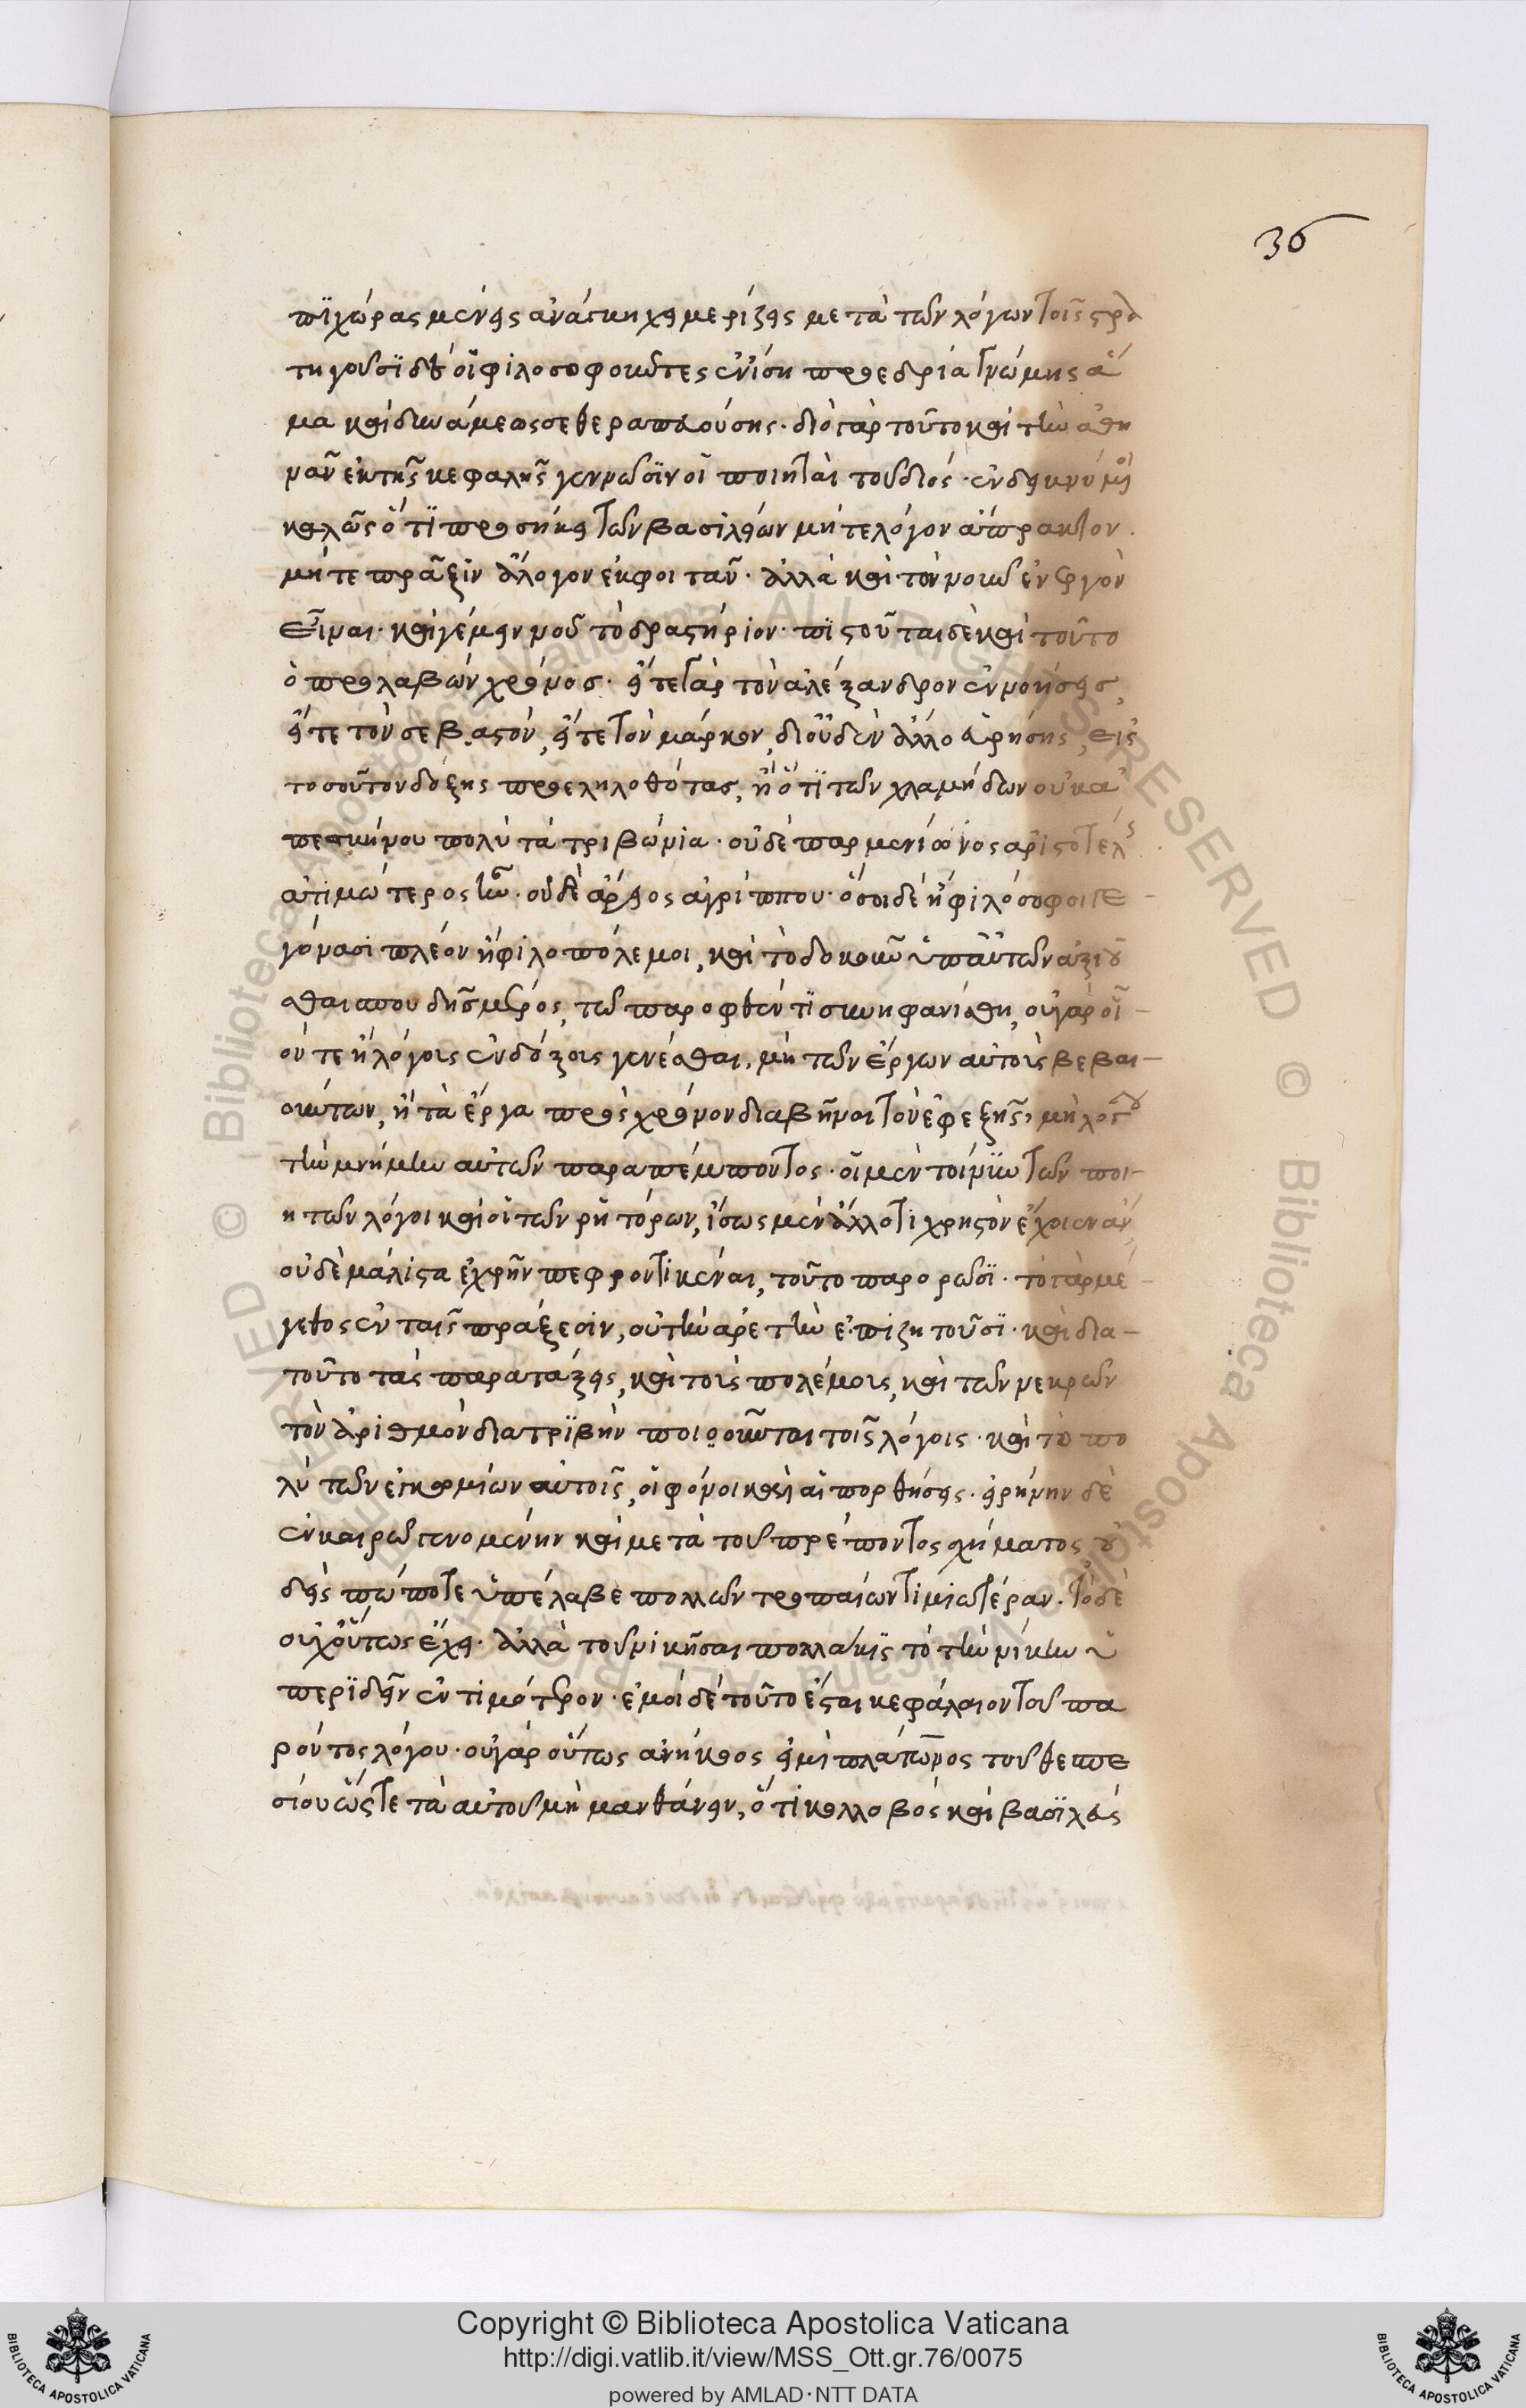 36
πϊχώρας μένεις ἀνάγκη χημερίζεις μετὰ τῶν λόγων τοῖς στρα
τηγοῦσϊ δὲ οἱ φιλοσοφοῦντες ἐν ἴση προεδρία γνώμης ἅ
μα καὶ δυνάμεως σε θεραπευούσης· διὸ γὰρ τοῦτο καὶ τὴν ἀθη
νᾶν ἐκ τῆς κεφαλῆς γεννῶσϊν οἱ ποιηταὶ τοῦ διός· ἐνδεικνύμενοι
καλῶς ὅτϊ προσήκει τῶν βασιλείων μήτε λόγον ἄπρακτον
μήτε πρᾶξιν ἄλογον ἐκφοιτᾶν· ἀλλὰ καὶ τὸν νοῦν ἐνεργὸν
εἶναι· καὶ γέμειν νοῦ τὸ δραστήριον· πιστοῦται δὲ καὶ τοῦτο
ὁ προλαβὼν χρόνος· εἴτε γὰρ τὸν ἀλέξανδρον ἐννοήσεις,
εἴτε τὸν σεβαστόν, εἴτε τὸν μάρκον, διοὐδὲν ἄλλο εὑρήσης, εἰς
τοσοῦτον δόξης προεληλοθότας, ἢ ὅτϊ τῶν χλαμήδων οὐκ ἀ
πεσκήνου πολὺ τὰ τριβώνια· οὐδὲ παρμενίωνος ἀριστοτέλης
ἀτιμώτερος ἦν· οὐδὲ ἄρειος ἀγρίππου· ὅσοι δὲ ἢ φιλόσοφοι γε
γόνασι πλέον ἢ φιλοπόλεμοι, καὶ τὸ δοκοῦν ὑπ' αὐτῶν ἀξιοῦ
σθαι σπουδῆς μέρος, τῶ παροφθέντϊ συνηφανίσθη, οὐ γὰρ οἷ
όν τε ἢ λόγοις ἐνδόξοις γενέσθαι, μὴ τῶν ἔργων αὐτοὶς βεβαι
ούντων, ἢ τὰ ἔργα πρὸς χρόνον διαβῆναι τὸν ἐφεξῆς, μὴ λόγου
τὴν μνήμην αὐτῶν παραπέμποντος· οἱ μὲν τοίνϋν τῶν ποι
ητῶν λόγοι καὶ οἱ τῶν ῥητόρων, ἴσως μὲν ἄλλο τι χρηστὸν ἔχοιεν ἂν,
οὐ δὲ μάλιστα ἐχρῆν πεφροντικέναι, τοῦτο παρορῶσϊ· τὸ γὰρ μέ
γεθος ἐν ταῖς πράξεσιν, οὐ τὴν ἀρετὴν ἐπιζητοῦσϊ· καὶ δια
τοῦτο τὰς παρατάξεις, καὶ τοὶς πολέμοις, καὶ τῶν νεκρῶν
τὸν ἀριθμὸν διατρϊβὴν ποιοοῦνται τοῖς λόγοις· καὶ τὸ πο
λὺ τῶν ἐγκωμίων αὐτοῖς, οἱ φόνοι καὶ αἱ πορθήσεις· εἰρήνην δὲ
ἐν καιρῶ γενομένην καὶ μετὰ τοῦ πρέποντος σχήματος οὐ
δεὶς πώποτε ὑπέλαβε πολλῶν τροπαίων τιμιωτέραν· τὸ δὲ
οὐχ οὕτως ἔχει· ἀλλὰ τοῦ νικῆσαι πολλακϊς τὸ τὴν νίκην ὑ
περϊδεῖν ἐντιμότερον· ἐμοὶ δὲ τοῦτο ἔσται κεφάλαιον τοῦ πα
ρόντος λόγου· οὐ γὰρ οὕτως ἀνήκοος εἰμὶ πλάτωνος τοῦ θεσπε
σίου ὥστε τὰ αὐτοῦ μὴ μανθάνειν, ὅτι κολλοβός καὶ βασϊλεὺς
Copyright © Biblioteca Apostolica Vaticana
http://digi.vatlib.it/view/MSS_Ott.gr.76/0075
powered by AMLAD·NTT DATA